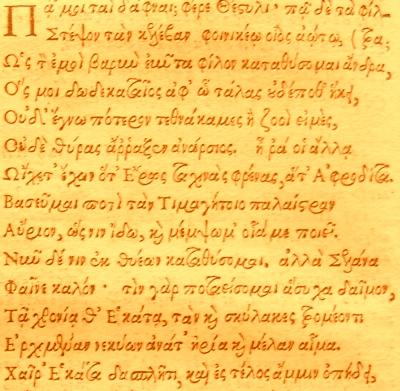 Πᾷ μοι ταὶ δάφναι; φέρε Θέστυλι· πᾷ δὲ τὰ φίλ-
Στέψον τὰν κελέβαν φοινικέῳ οἰὸς ἀώτῳ, (τρα;
Ὡς τὸν ἐμοὶ βαρὺν εὖντα φίλον καταθύσομαι ἄνδρα,
Ὅς μοι δωδεκαταῖος ἀφ' ὧ τάλας οὐδέποθ' ἥκει,
Οὐδ' ἔγνω πότερον τεθνάκαμες ἢ ζοοὶ εἰμές,
Οὐδὲ θύρας ἄῤῥαξεν ἀνάρσιος. ἦ ῥά οἱ ἄλλα
Ὤιχετ' ἔχων ὅτ' Ἔρως ταχινὰς φρένας, ἅτ' Ἀφροδίτα.
Βασεῦμαι ποτὶ τὰν Τιμαγήτοιο παλαίστραν
Αὔριον, ὥς νιν ἴδω, καὶ μέμψωμ' οἷά με ποιεῖ.
Νῦν δέ νιν ἐκ θυέων καταθύσομαι. ἀλλὰ Σελάνα
Φαῖνε καλόν· τὶν γὰρ ποταείσομαι ἅσυχα δαῖμον,
Τᾷ χθονίᾳ θ' Ἑκάτᾳ, τὰν καὶ σκύλακες τρομέοντι
Ἐρχομέναν νεκύων ἀνά τ' ἠρία καὶ μέλαν αἷμα.
Χαῖρ' Ἑκάτα δασπλῆτι, καὶ ἐς τέλος ἄμμιν ὀπήδει,